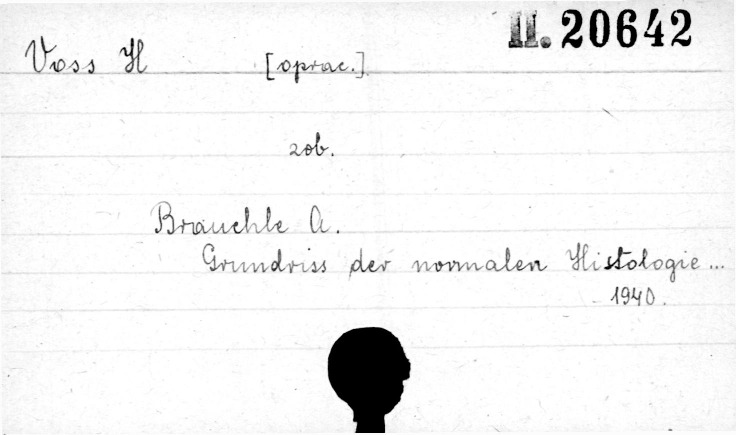 II. 20642
Voss H [oprac.]
zob.
Brauchle A.
Grundriss der normalen Histologie...
1940.